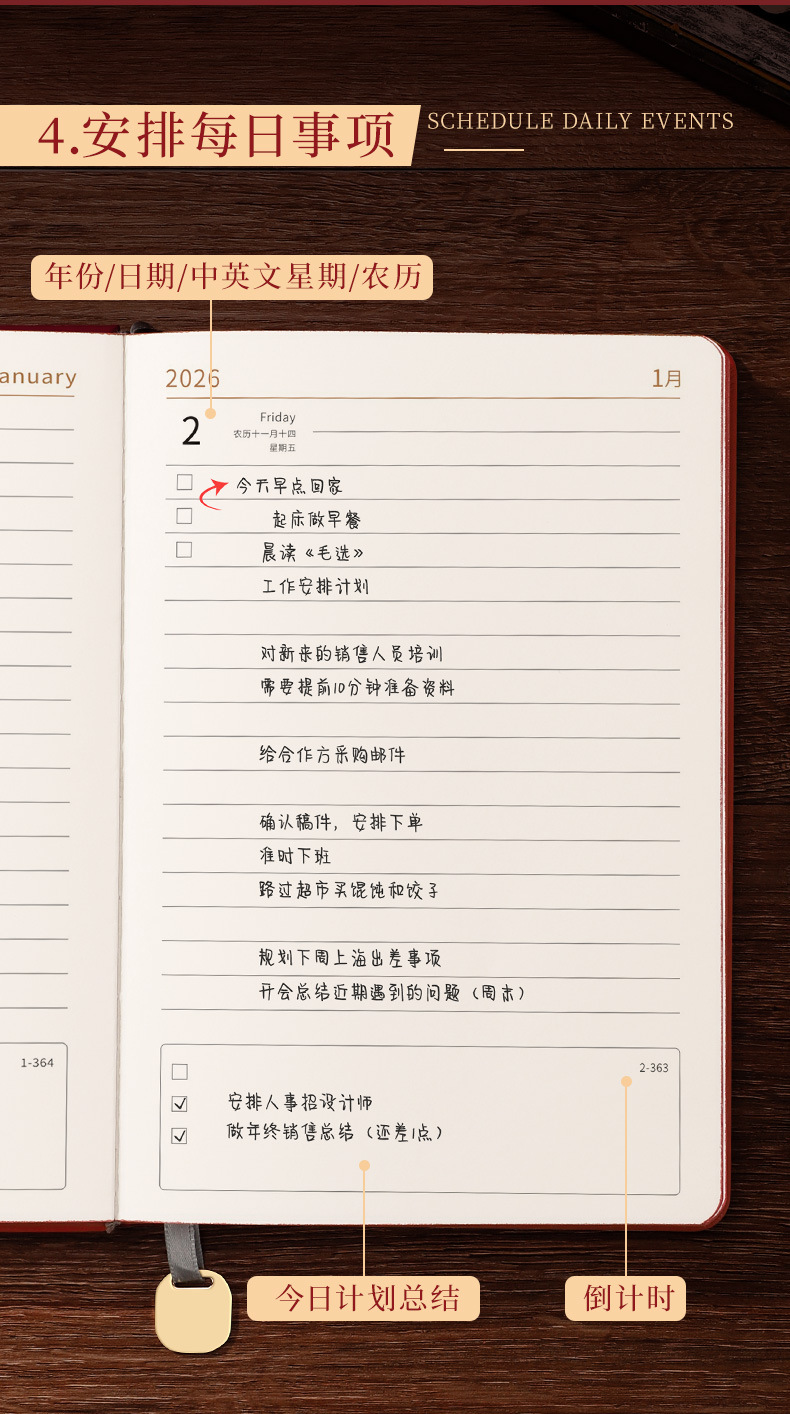 4.安排每日事项
SCHEDULE DAILY EVENTS
年份/日期/中英文星期/农历
anuary
2026
1月
2
Friday
农历十一月十四
星期五
今天早点回家
起床做早餐
晨读《毛选》
工作安排计划
对新来的销售人员培训
需要提前10分钟准备资料
给合作方采购邮件
确认稿件，安排下单
准时下班
路过超市买馄饨和饺子
规划下周上海出差事项
开会总结近期遇到的问题（周末）
1-364
2-363
安排人事招设计师
做年终销售总结（还差1点）
今日计划总结
倒计时